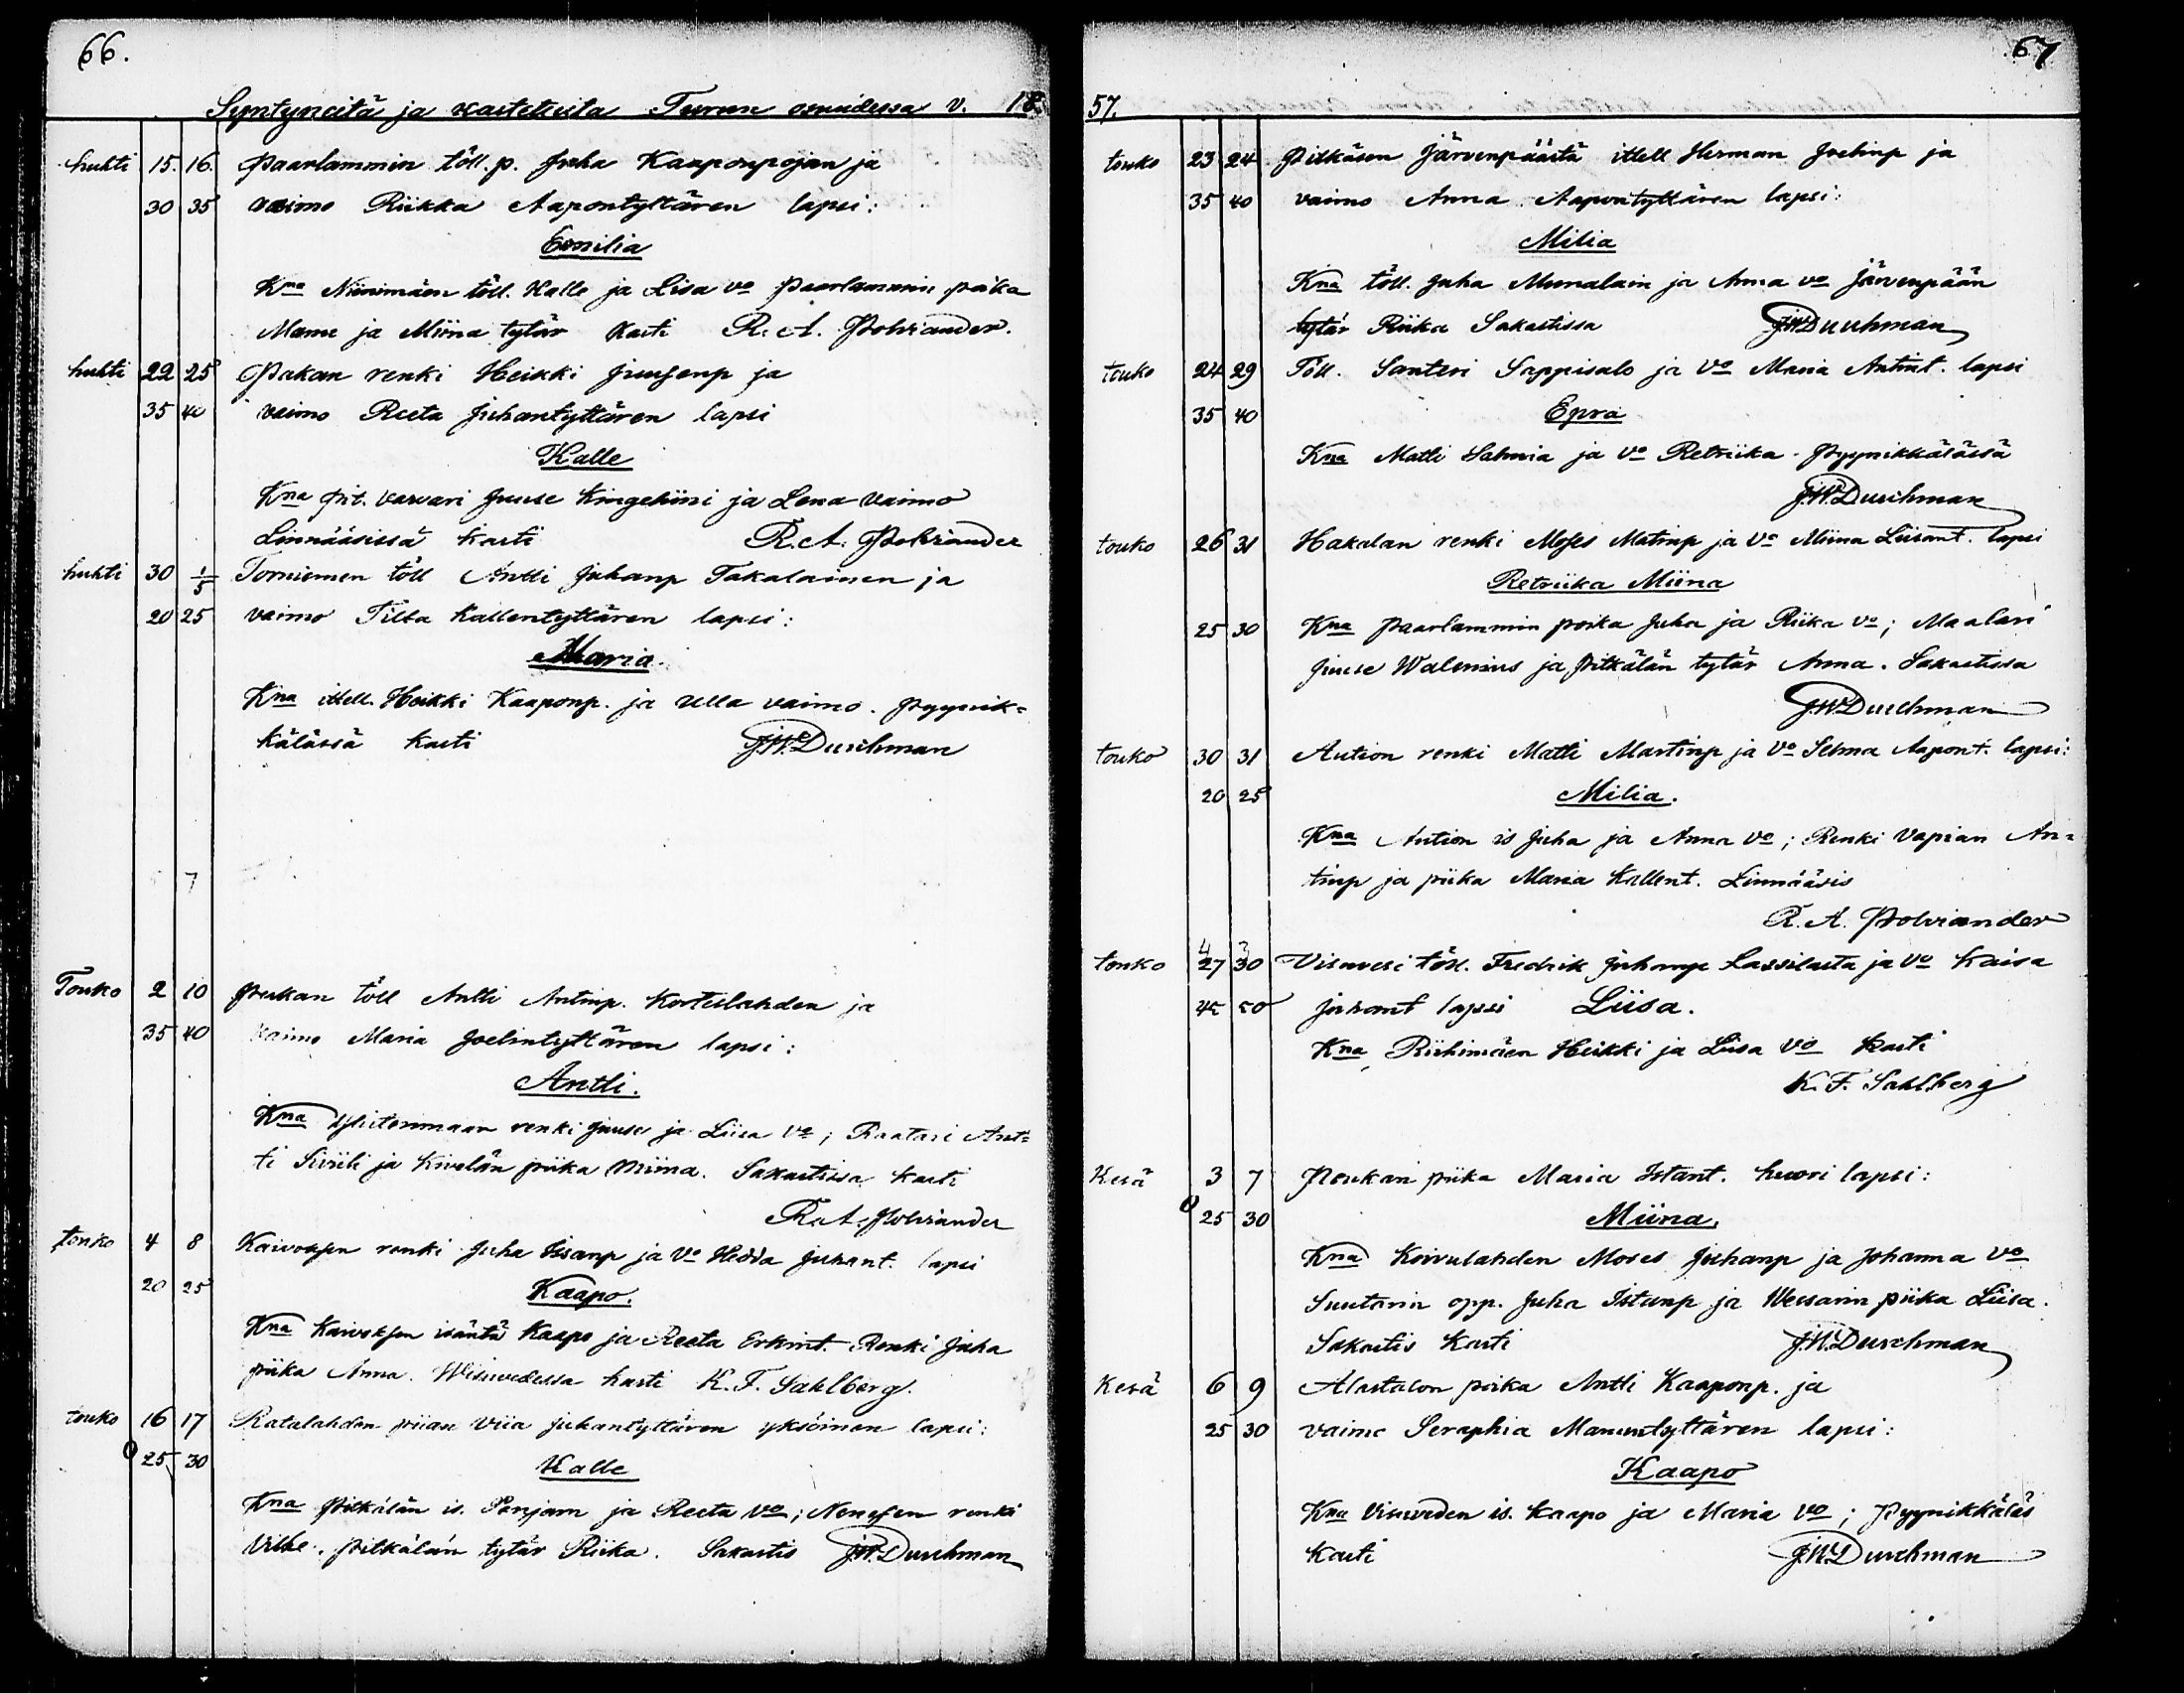 66.
Syntyneitä ja kastetuita Turun osuudessa v. 18
huhti 15. 16. Paarlammin töll. p. Juha Kaaponpojan ja
30 35 vaimo Riikka Aapontyttären lapsi:
Emilia
Kna Niinimäen töll. Kalle ja Lisa vo Paarlammin poika
Manu ja Miina tytär Kasti R. A. Polviander.
huhti 22 25 Pakan renki Heikki Juusenp ja
35 40 vaimo Reeta Juhantyttären lapsi
Kalle
Kna pit. varvari Juuse Kingeliini ja Lena vaimo
Linnääsissä kasti R. A. Polviander
huhti 30 1/5 Torniemen töll Antti Juhanp Takalainen ja
20 25 vaimo Tilta Kallentyttären lapsi:
Maria.
Kna ittell. Heikki Kaaponp. ja Ulla vaimo. Pyynik=
kälässä kasti J.W. Durchman
7
Touko 2 10 Peukan töll Antti Antinp. Kortelahden ja
35 40 vaimo Maria Joelintyttären lapsi:
Antti.
Kna renki Juuse ja Liisa vo; Raatari Ant=
ti ja Kivelän piika Miina. Sakastissa kasti
R. A. Polviander
touko 4 8 Kaivoksen renki Juha Iisanp ja Vo Hedda Juhant. lapsi
20 25 Kaapo.
Kna Kaivoksen isäntä Kaapo ja Reeta Erkint. Renki Juha
piika Anna. Wisuvedessa kasti K. F. Sahlberg.
touko 16 17 Ratalahden piian Viia Juhantyttären yksöinen lapsi:
0 25 30 Kalle
Kna Pitkälän is. Penjam ja Reeta vo; renki
Pitkälän tytär Riika. Sakastis J.W. Durchman
67
57.
touko 23 24 Pitkäsen Järvenpäästä ittell Herman Joelinp ja
35 40 vaimo Anna Aapontyttären lapsi:
Milia
Kna töll. Juha Munalain ja Anna vo Järvenpään
tytär Riika Sakastissa J.W. Durchman
touko 24 29 Töll. Santeri Sappisalo ja Vo Maria Antint. lapsi
35 40 Epra
Kna Matti Salmia ja vo Retriika. Pyynikkälässä
J.W. Durchman
touko 26 31 Hakalan renki Moses Matinp ja Vo Miina Liisant. lapsi
Retriika Miina
25 30 Kna Paarlammin poika Juha ja Riika vo; Maalari
Juuse Walenius ja Pitkälän tytär Anna. Sakastissa
J.W. Durchman
touko 30 31 Aution renki Matti Martinp ja Vo Selma Aapont. lapsi:
20 25 Milia.
Kna Aution is Juha ja Anna vo; Renki Vapian An=
tinp ja piika Maria Kallent. Linnääsis
R. A. Polviander
touko 27 30 Visuvesi töll. Fredrik Juhanp Lassilasta ja vo Kaisa
45 50 Juhant lapsi Liisa.
Kna Riihimäen Heikki ja Liisa vo kasti
K. F. Sahlberg
Kesä 3 7 Peukan piika Maria Istant. huori lapsi:
0 25 30 Miina.
Kna Koivulahden Moses Juhanp ja Johanna vo
Suutarin opp. Juha Istanp ja Wessarin piika Liisa.
Sakastis kasti J.W. Durchman
Kesä 6 9 Alastalon poika Antti Kaaponp. ja
25 30 vaimo Seraphia Manuntyttären lapsi:
Kaapo
Kna Visuveden is. Kaapo ja Maria vo; Pyynikkäläs
kasti J.W. Durchman